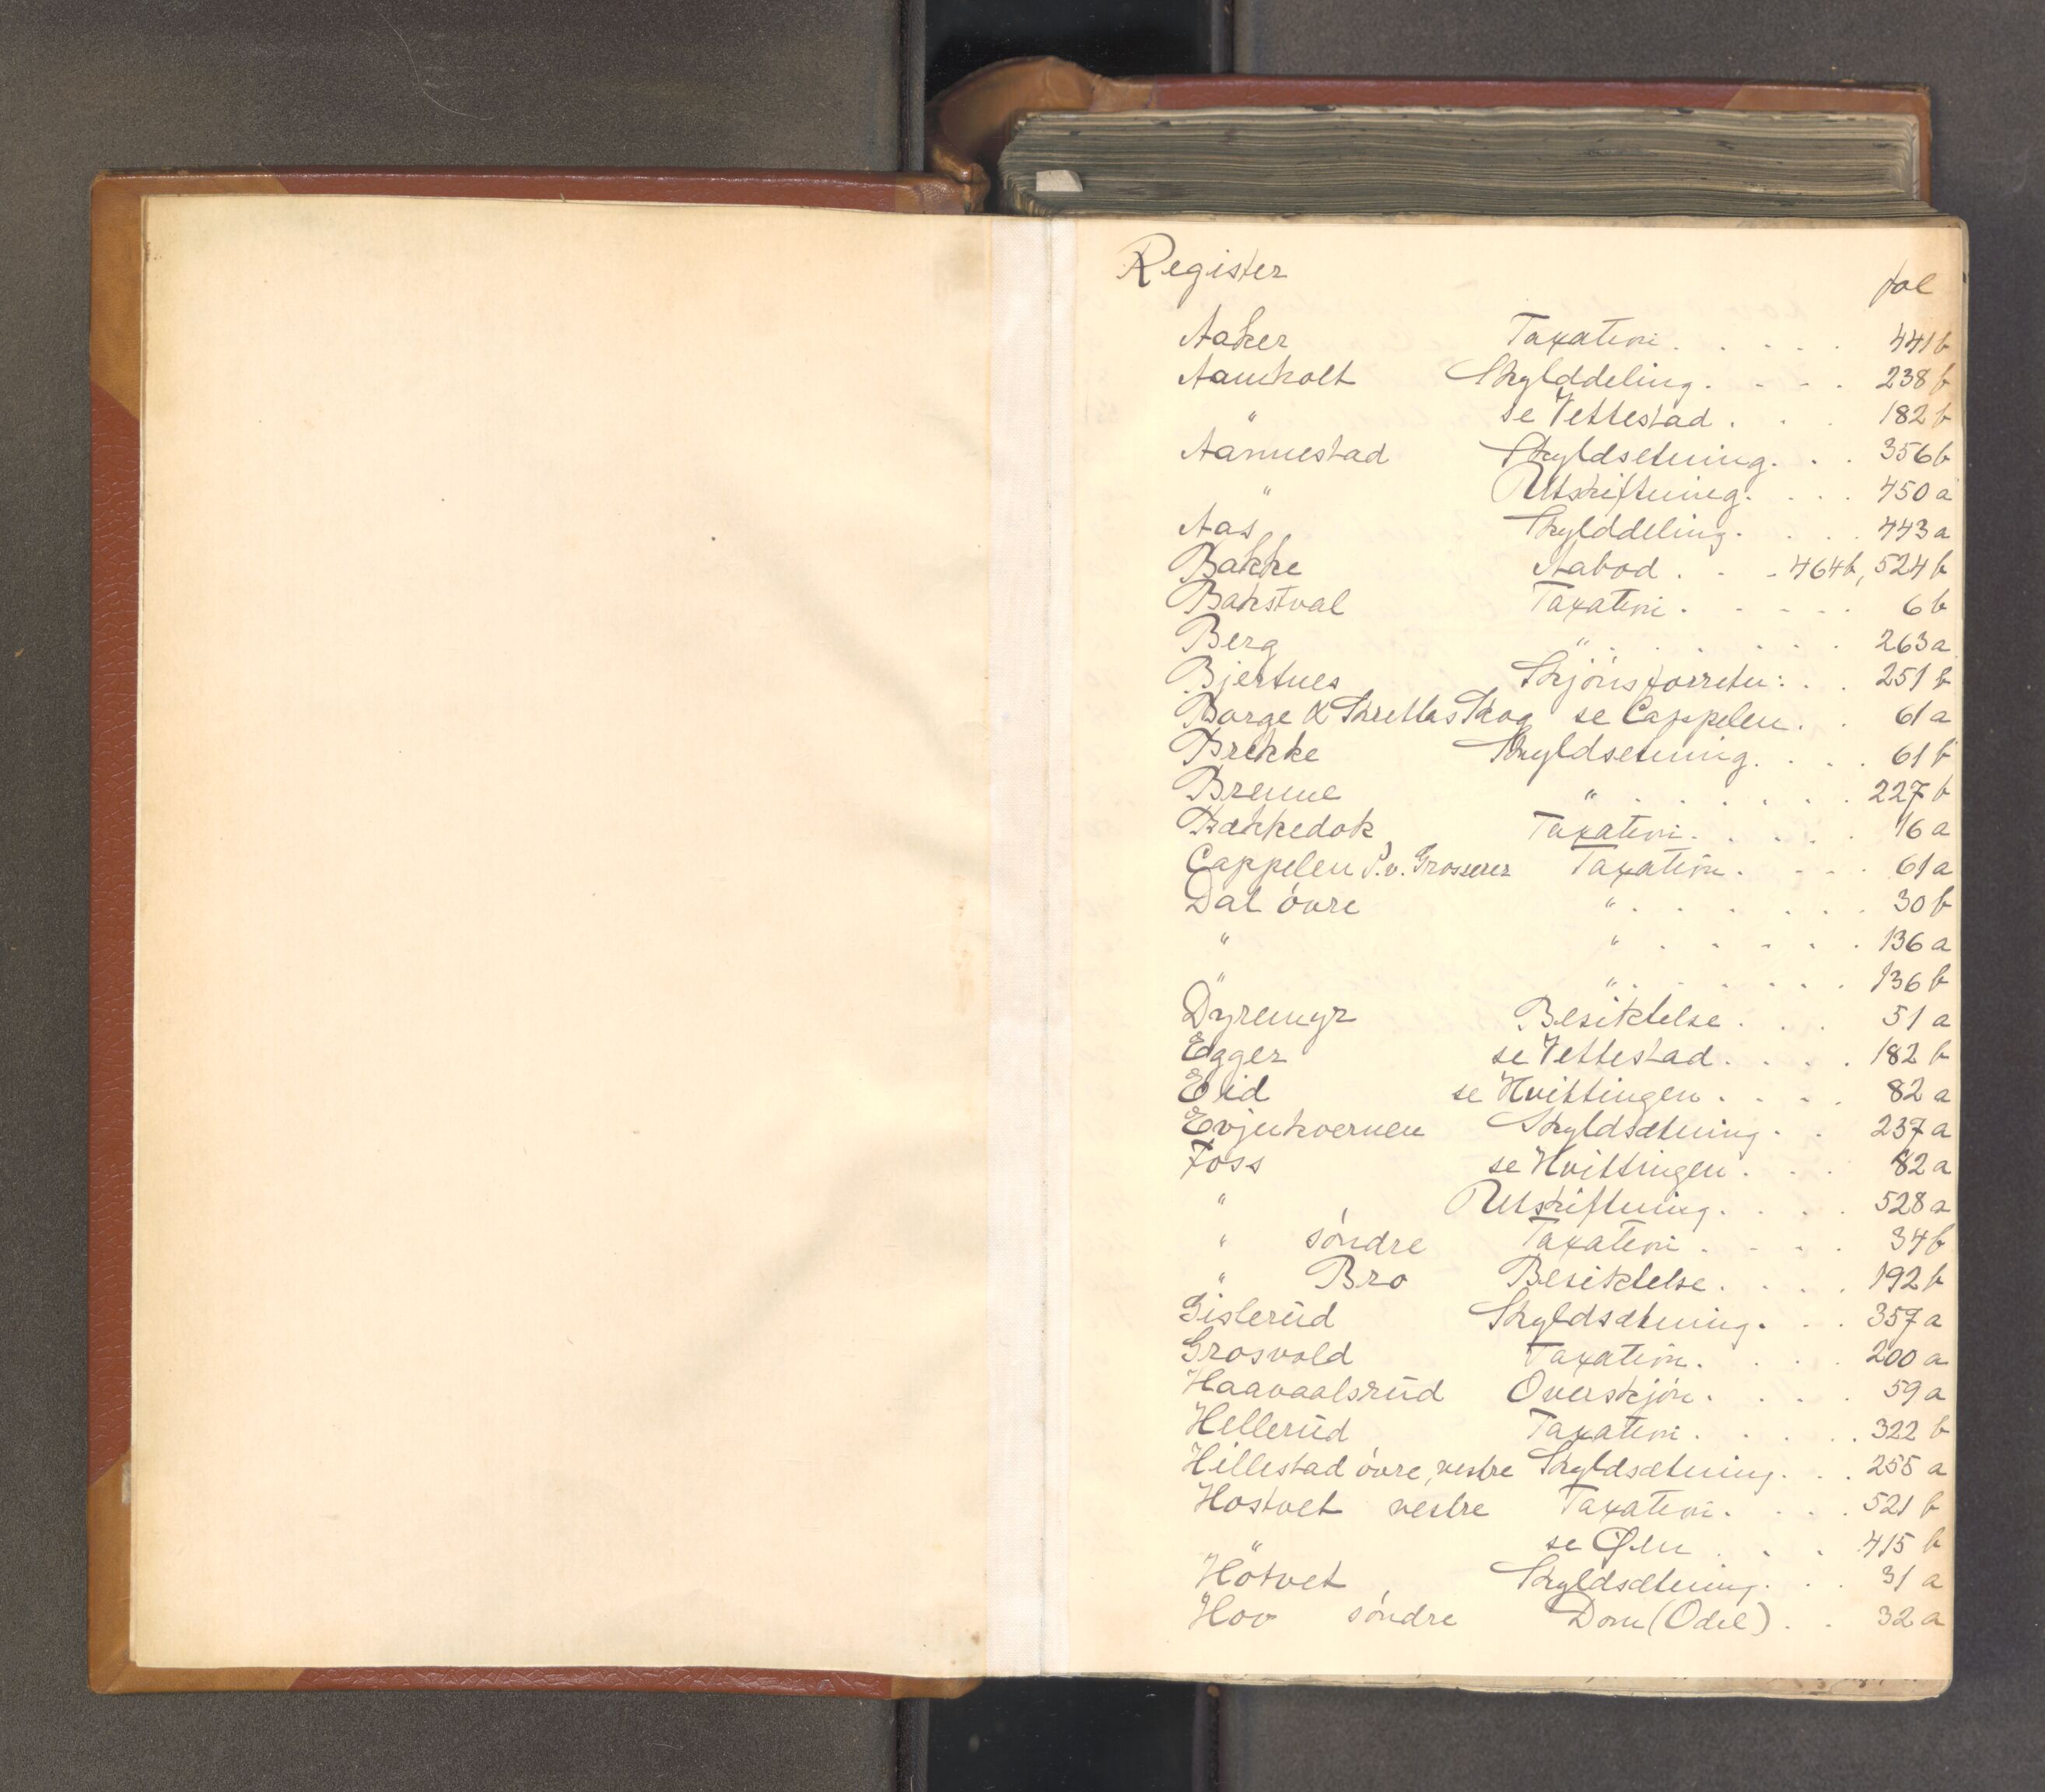 Register
fol
Aaker Taxation . . . . . 441 b
Aamholt Skylddeling . . . . 238 b
" se Vettestad . . . 182 b
Aannestad Skyldsetning . . . 356 b
" Utskiftning . . . . 450 a
Aas Skylddeling . . . . 443 a
Bakke Aabod . . . 464 b, 524 b
Bakstval Taxation . . . . . 6 b
Berg " . . . . . . 263 a
Bjertnes Skjønsforretn: . . 251 b
Borge & Skrettas Skog se Cappelen . . 61 a
Brekke Skyldsetning . . . . 61 b
Brenne " . . . . . . 227 b
Bækkedok Taxation . . . . . 16 a
Cappelen P.v. Grosserer Taxation . . . . 61 a
Dal övre " . . . . . . 30 b
" " . . . . . 136 a
" " . . . . . . 136 b
Dyremyr Besiktelse . . . 51 a
Egger se Vettestad . . . . 182 b
Eid se Hvittingen . . . . 82 a
Evjenkvernen Skyldsætning . . 237 a
Foss se Hvittingen . . . 82 a
" Utskiftning . . . . 528 a
" söndre Taxation . . . . 34 b
" Bro Besiktelse . . . . 192 b
Gislerud Skyldsætning . . . 357 a
Grosvold Taxation . . . . 200 a
Haavaalsrud Overskjøn . . . . 59 a
Hellerud Taxation . . . . . 322 b
Hillestad övre, vestre Skyldsætning . . . 255 a
Hostvet vestre Taxation . . . . 521 b
" se Ølen . . . 415 b
Hötvet Skyldsætning . . . 31 a
Hov söndre Dom (Odel) . . 32 a